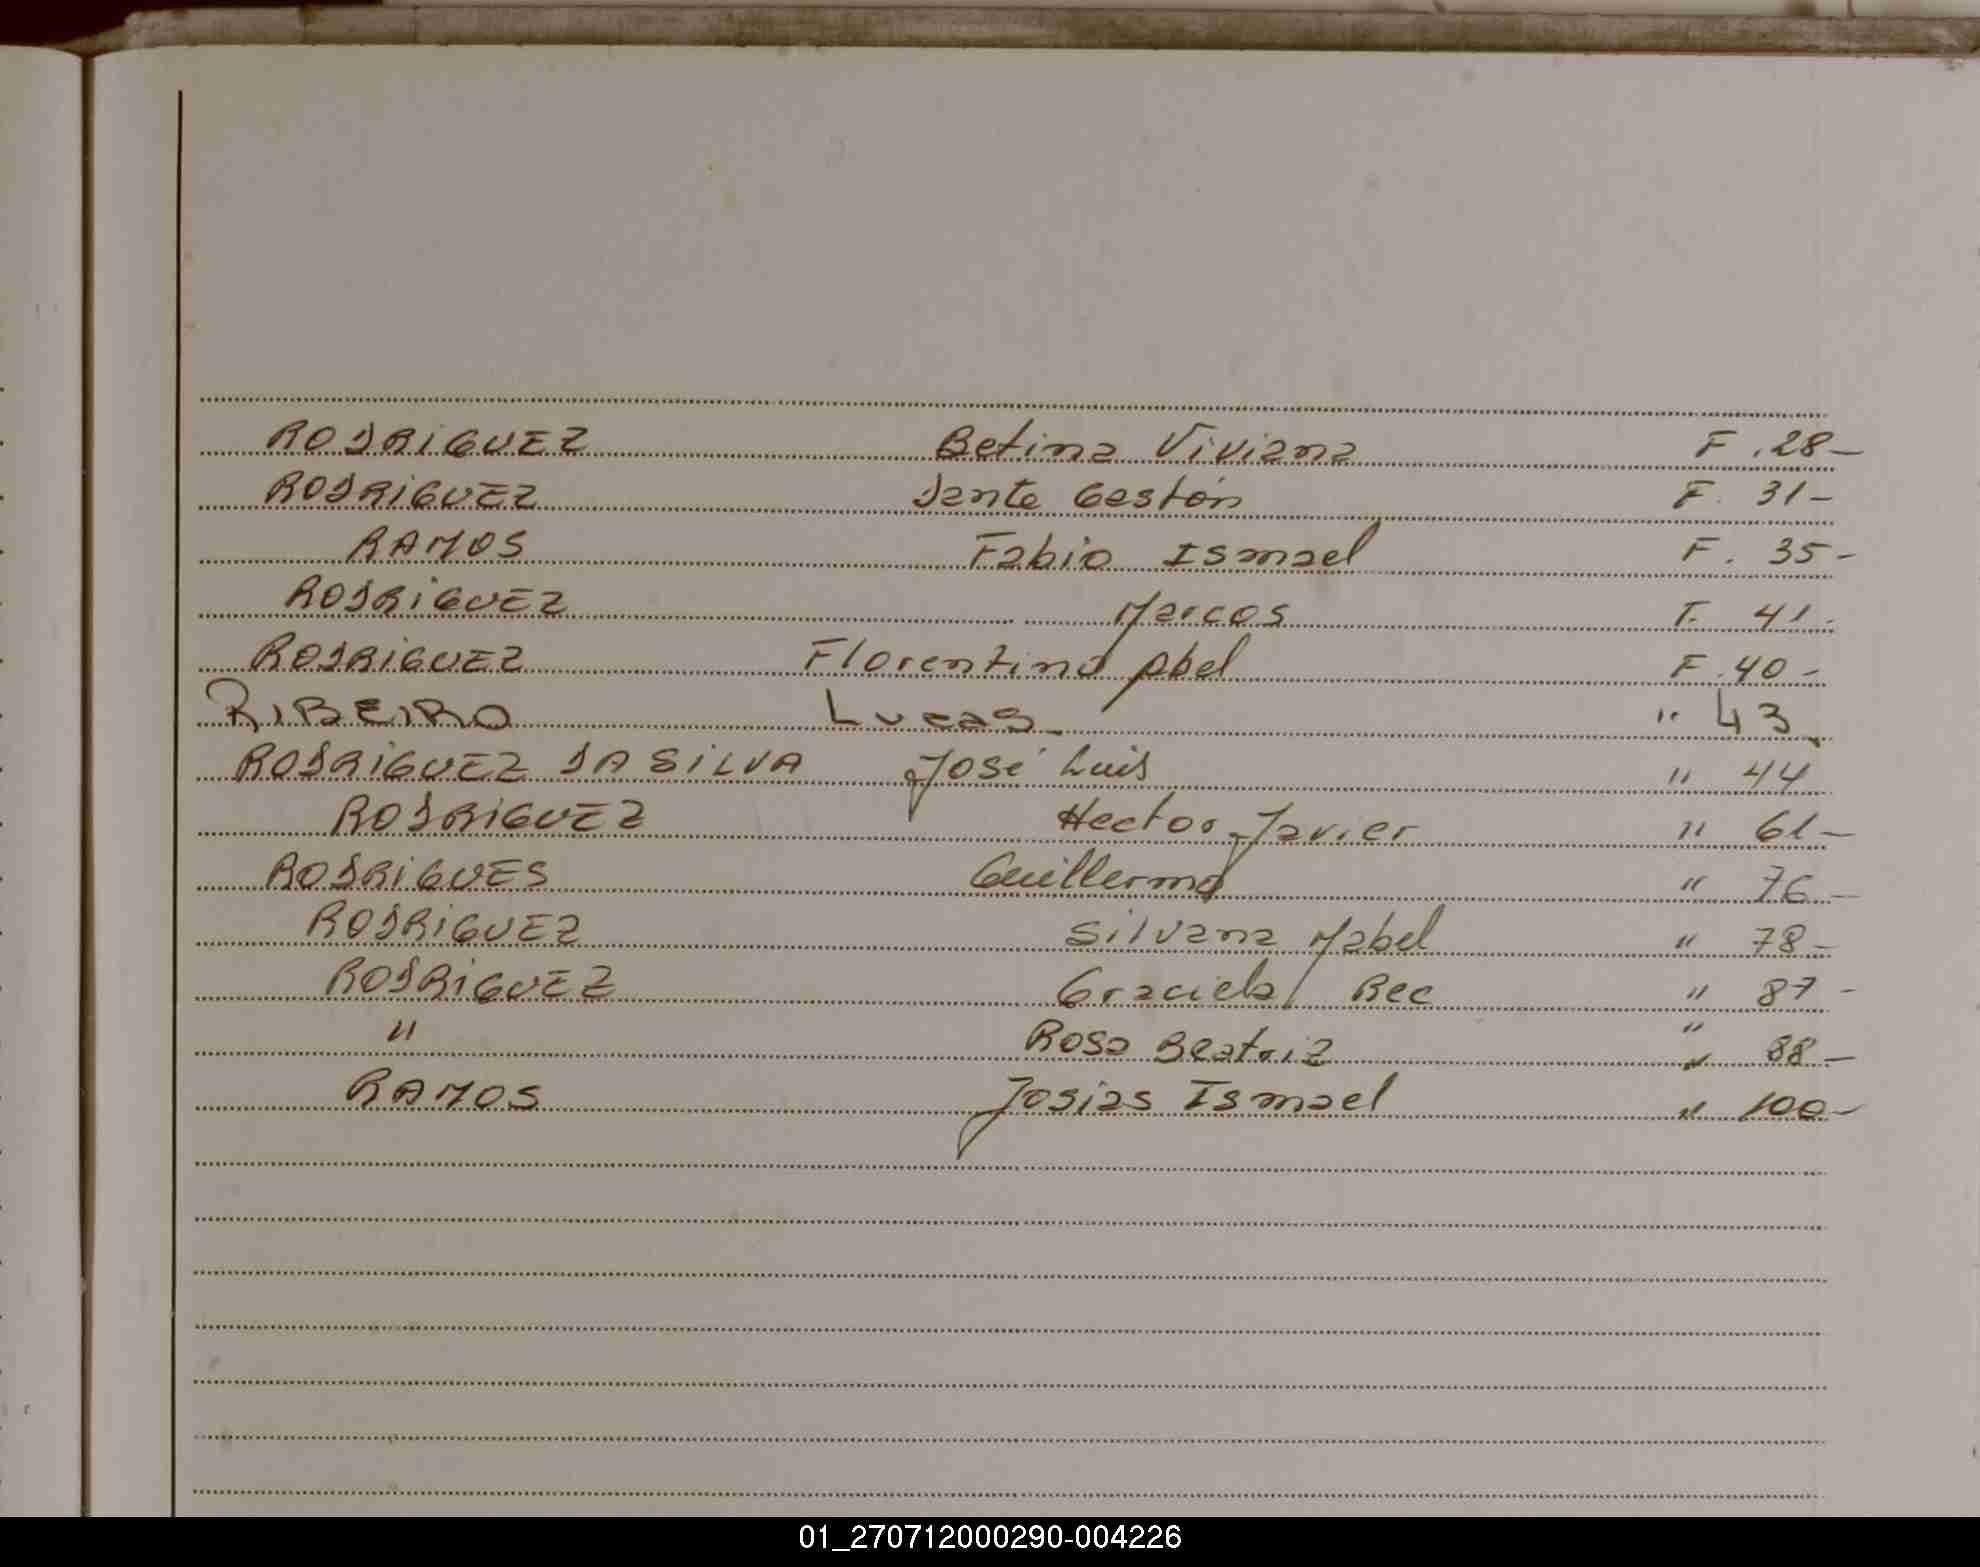 RODRIGUEZ Betina Viviana F. 28-
RODRIGUEZ Dante Gastón F. 31-
RAMOS Fabio Ismael F. 35-
RODRIGUEZ Marcos F. 41-
RODRIGUEZ Florentino Abel F. 40-
RIBEIRO Lucas. " 43.
RODRIGUEZ DA SILVA José Luis " 44
RODRIGUEZ Hector Javier " 61-
RODRIGUES Guillermo " 76-
RODRIGUEZ Silvana Mabel " 78-
RODRIGUEZ Graciela Bee " 87-
" Rosa Beatriz " 88-
RAMOS Josias Ismael " 100-
01_270712000290-004226